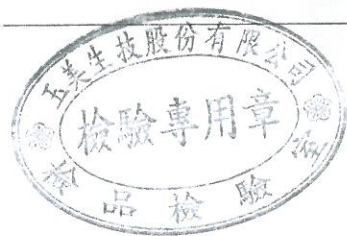 玉美生技股份有限公司
檢驗專用章
食品檢驗室